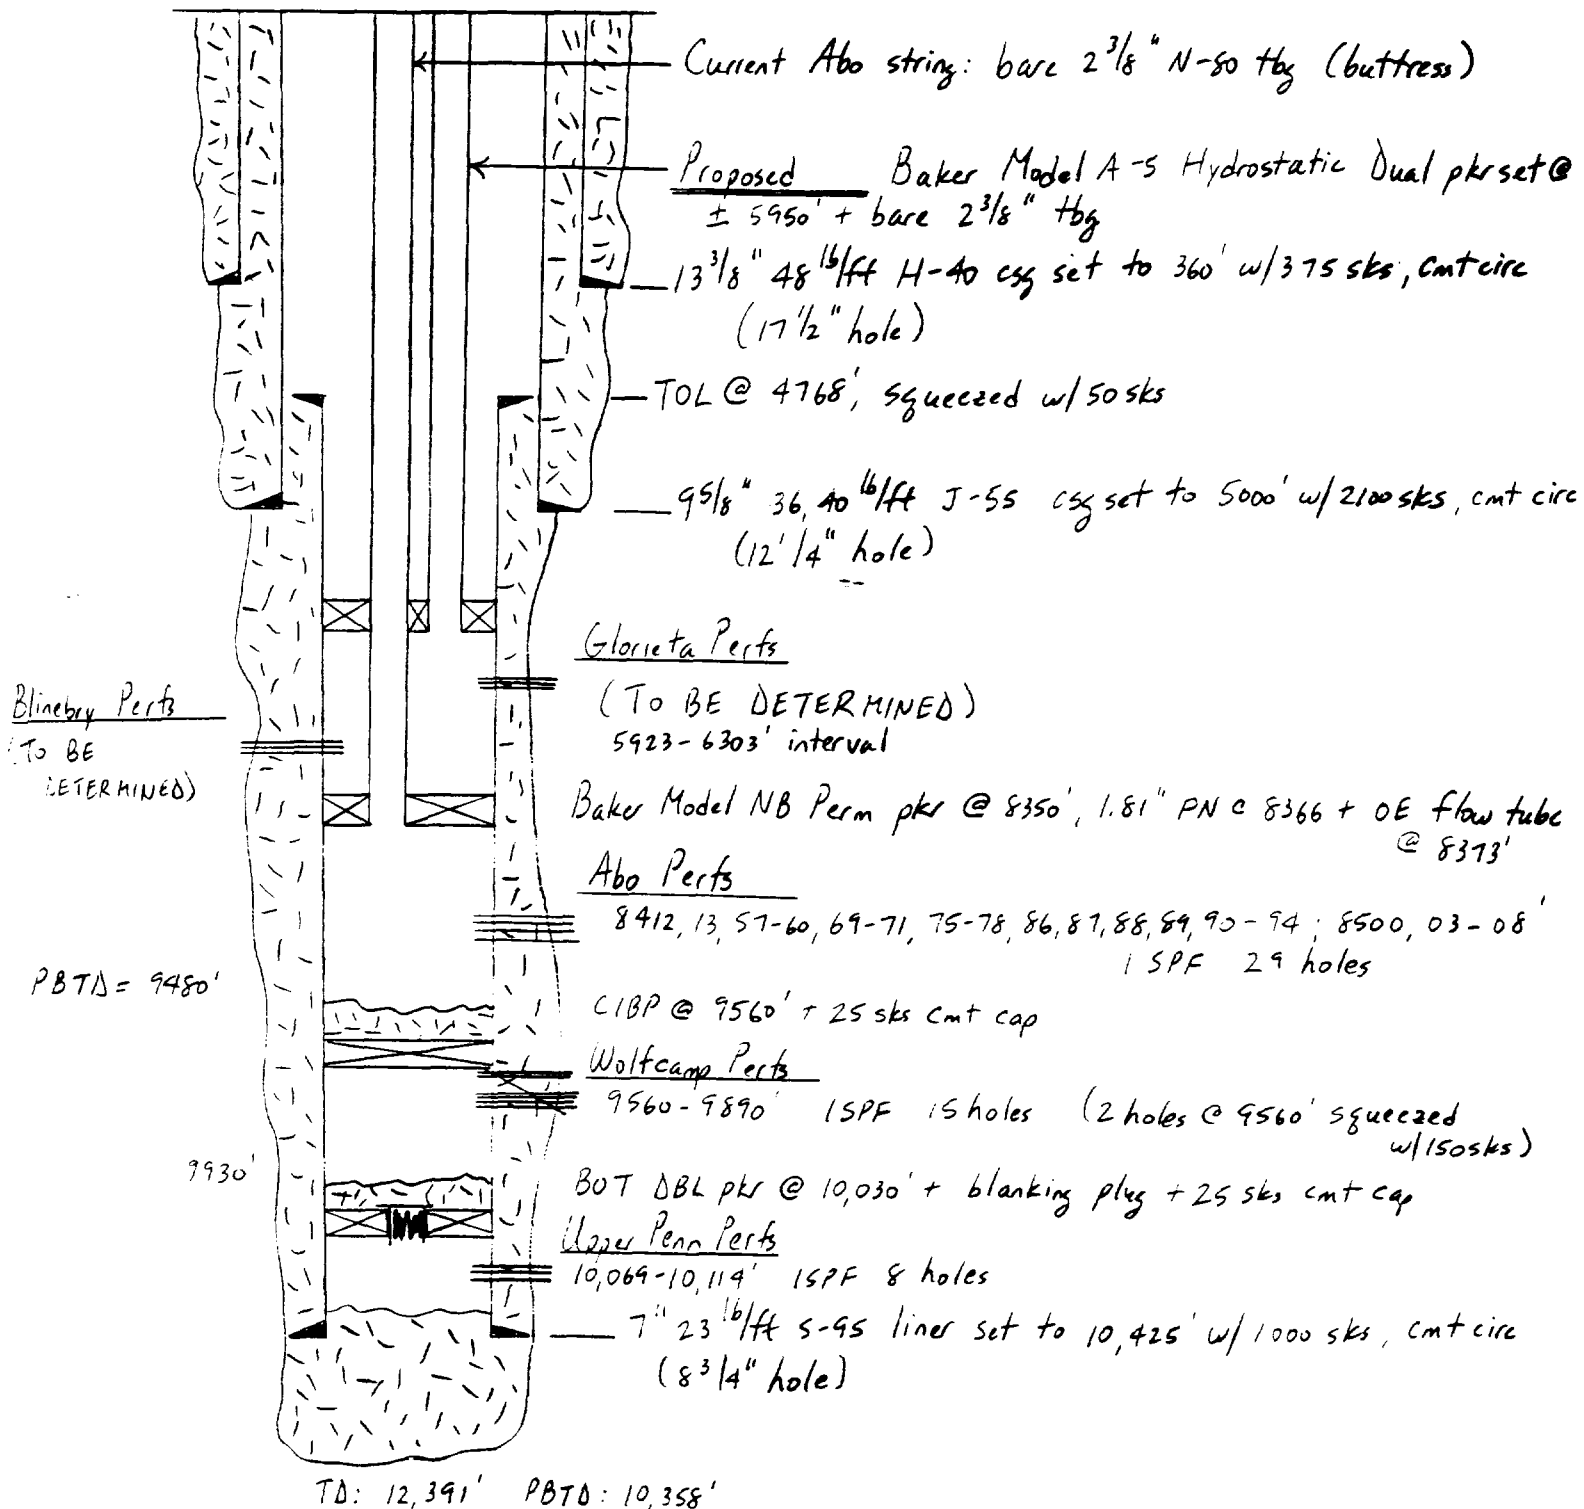 Current Abo string: bare 2 3/8" N-80 tbg (buttress)
Proposed Baker Model A-5 Hydrostatic Dual pkr set @
± 5950' + bare 2 3/8" tbg
13 3/8" 48 lb/ft H-40 csg set to 360' w/375 sks, cmt circ
(17 1/2" hole)
TOL @ 4768', squeezed w/ 50 sks
9 5/8" 36, 40 lb/ft J-55 csg set to 5000' w/ 2100 sks, cmt circ
(12 1/4" hole)
Glorieta Perfs
(TO BE DETERMINED)
5923-6303' interval
Blinebry Perfs
(TO BE
DETERMINED)
Baker Model NB Perm pkr @ 8350', 1.81" PN @ 8366 + OE flow tube
@ 8373'
Abo Perfs
8412, 13, 57-60, 69-71, 75-78, 86, 87, 88, 89, 90-94; 8500, 03-08'
1 SPF 29 holes
PBTD = 9480'
CIBP @ 9560' + 25 sks cmt cap
Wolfcamp Perfs
9560-9890' 1SPF 15 holes (2 holes @ 9560' squeezed
w/150sks)
9930'
BOT DBL pkr @ 10,030' + blanking plug + 25 sks cmt cap
Upper Penn Perfs
10,069-10,114' 1SPF 8 holes
7" 23 lb/ft S-95 liner set to 10,425' w/ 1000 sks, cmt circ
(8 3/4" hole)
TD: 12,391' PBTD: 10,358'